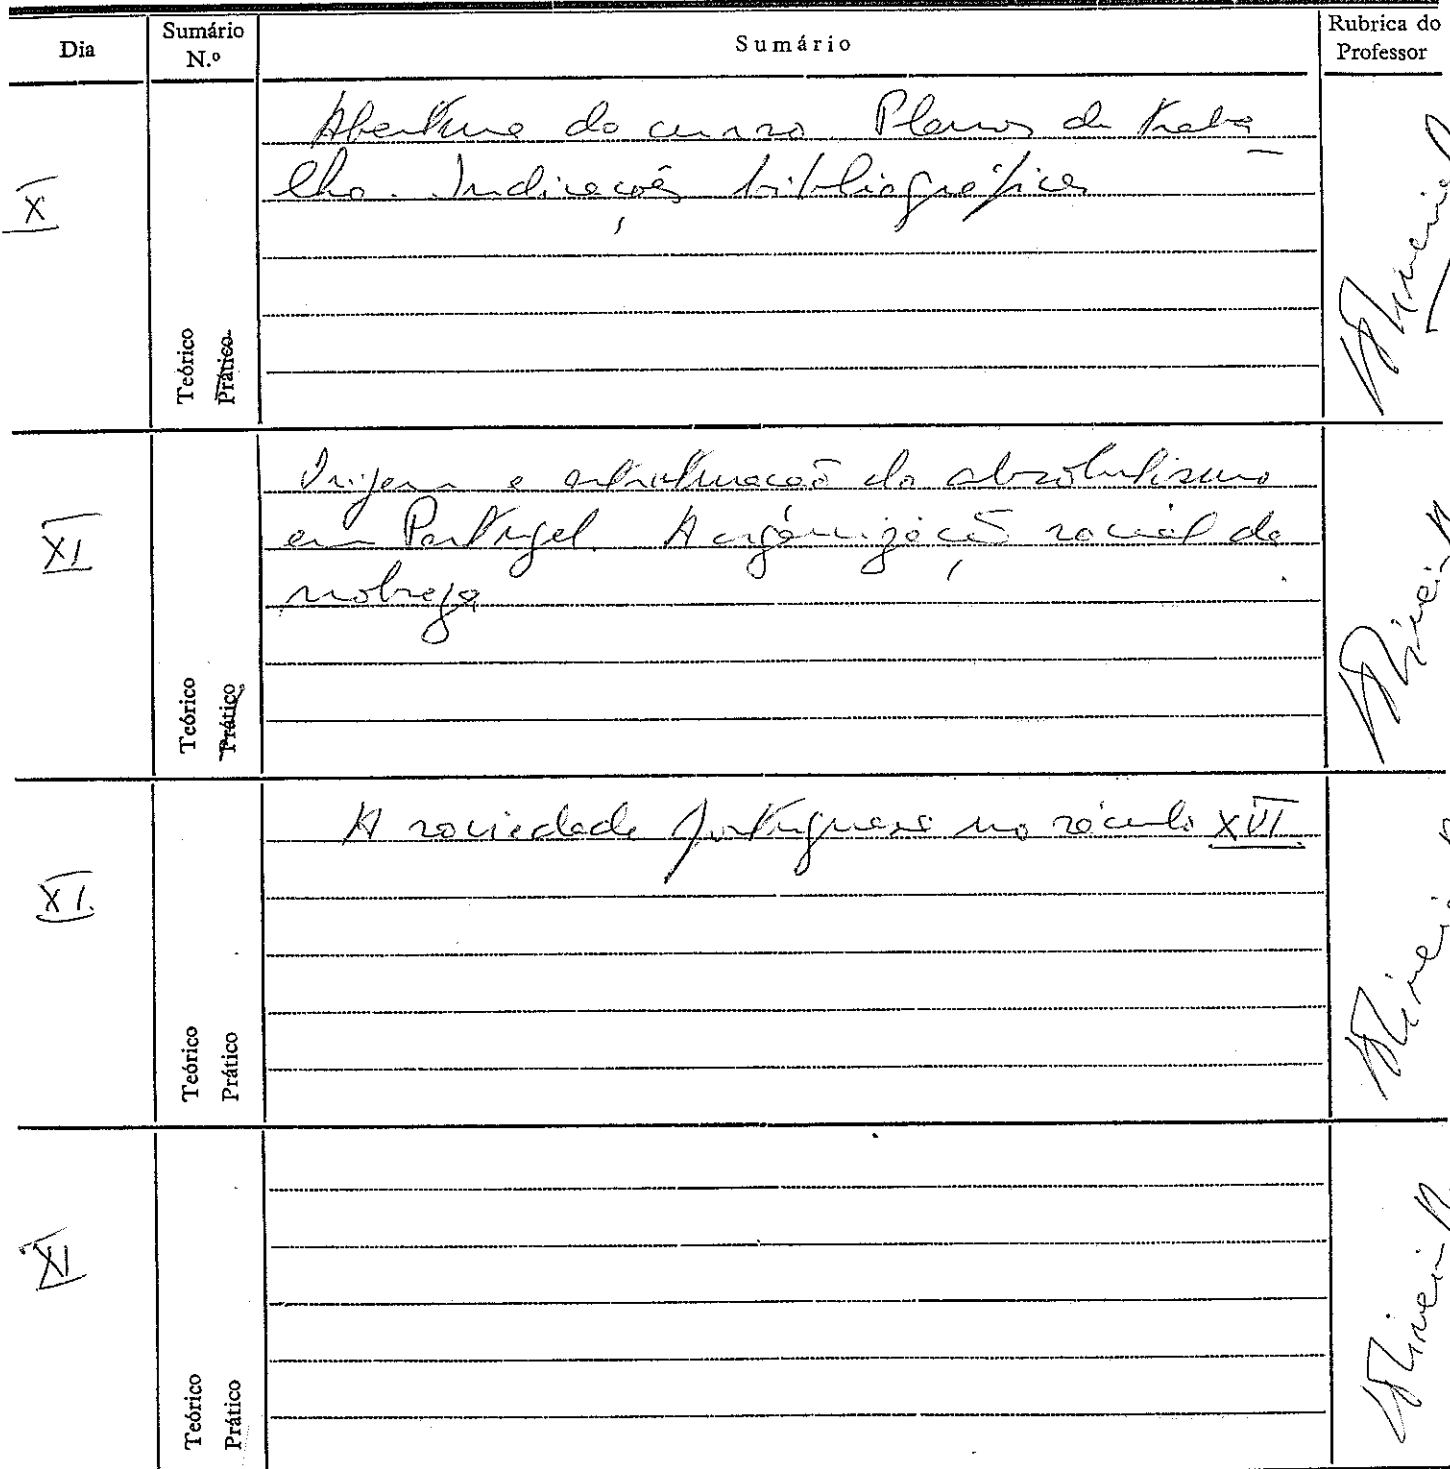 Dia
Sumário
N.º
Sumário
Rubrica do
Professor
X
Teórico
Prático
Abertura do curso. Planos de traba
lho. Indicações bibliográficas
XI
Teórico
Prático
Origem e estruturação do absolutismo
em Portugal. A organização social da
nobreza
XI.
Teórico
Prático
A sociedade portuguesa no século XVI.
XI
Teórico
Prático